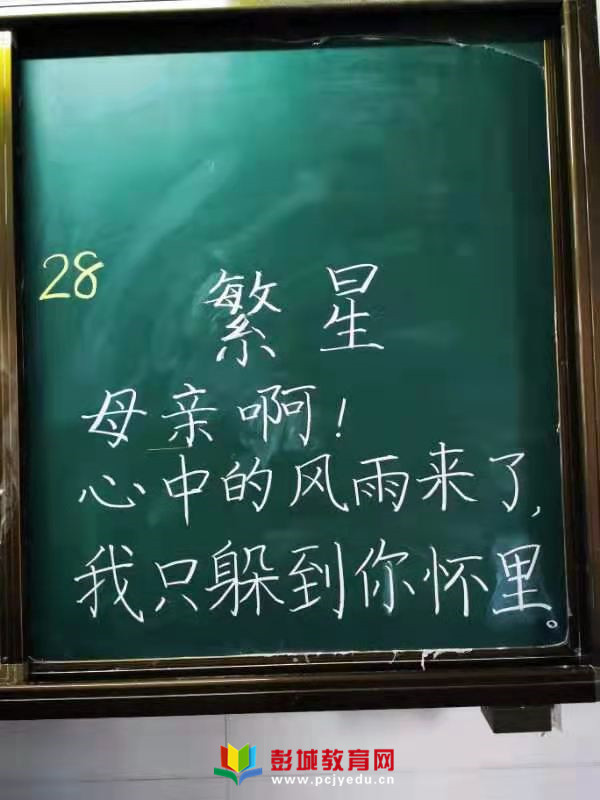 28
繁星
母亲啊!
心中的风雨来了,
我只躲到你怀里。
彭城教育网
www.pcjyedu.cn